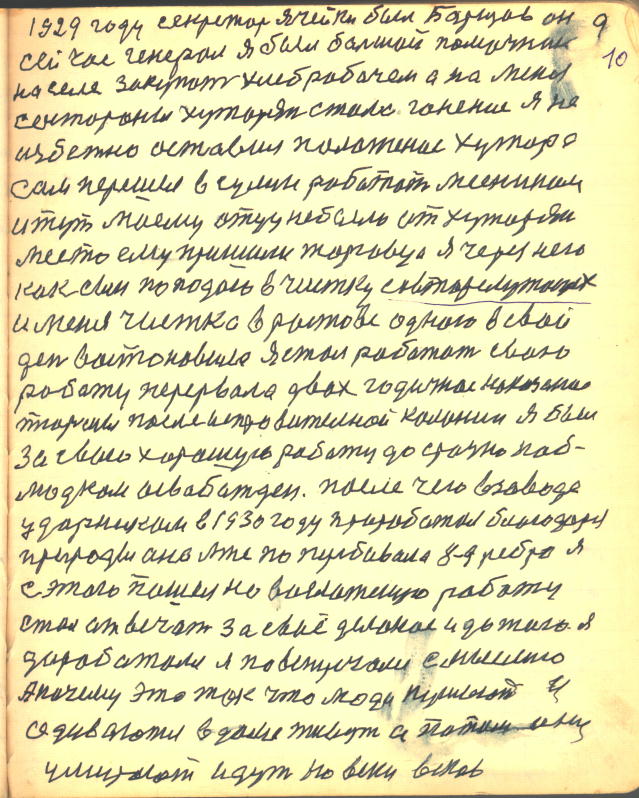 1929 году секретар ячейки был Барцов он 9
сейчас генерал я был балшой помочник 10
на селе закупат хлеб рабочем а на меня
состороны хуторян стало гонение я не
избежно оставил положение хутора
сам перешел в сулин работат
и тут моему отцу небыло от хуторян
место ему пришили торговца я через него
как сын поподаю в чистку
и меня чистка в ростове одного в свой
ден востоновила я стал работат свою
работу перервала двох годичное наказание
после исправователной колонии я был
за свою хорошую работу до срочно
освабажден. после чего в заводе
ударником в 1930 году проработал благодаря
природы она мне по 8-9 ребро я
с этого пошел на работу
стал отвечат за своё делоное и до того я
доработался
А почему это так что люди
одиваются в доме живут а потом они
умирают идут на веки веков